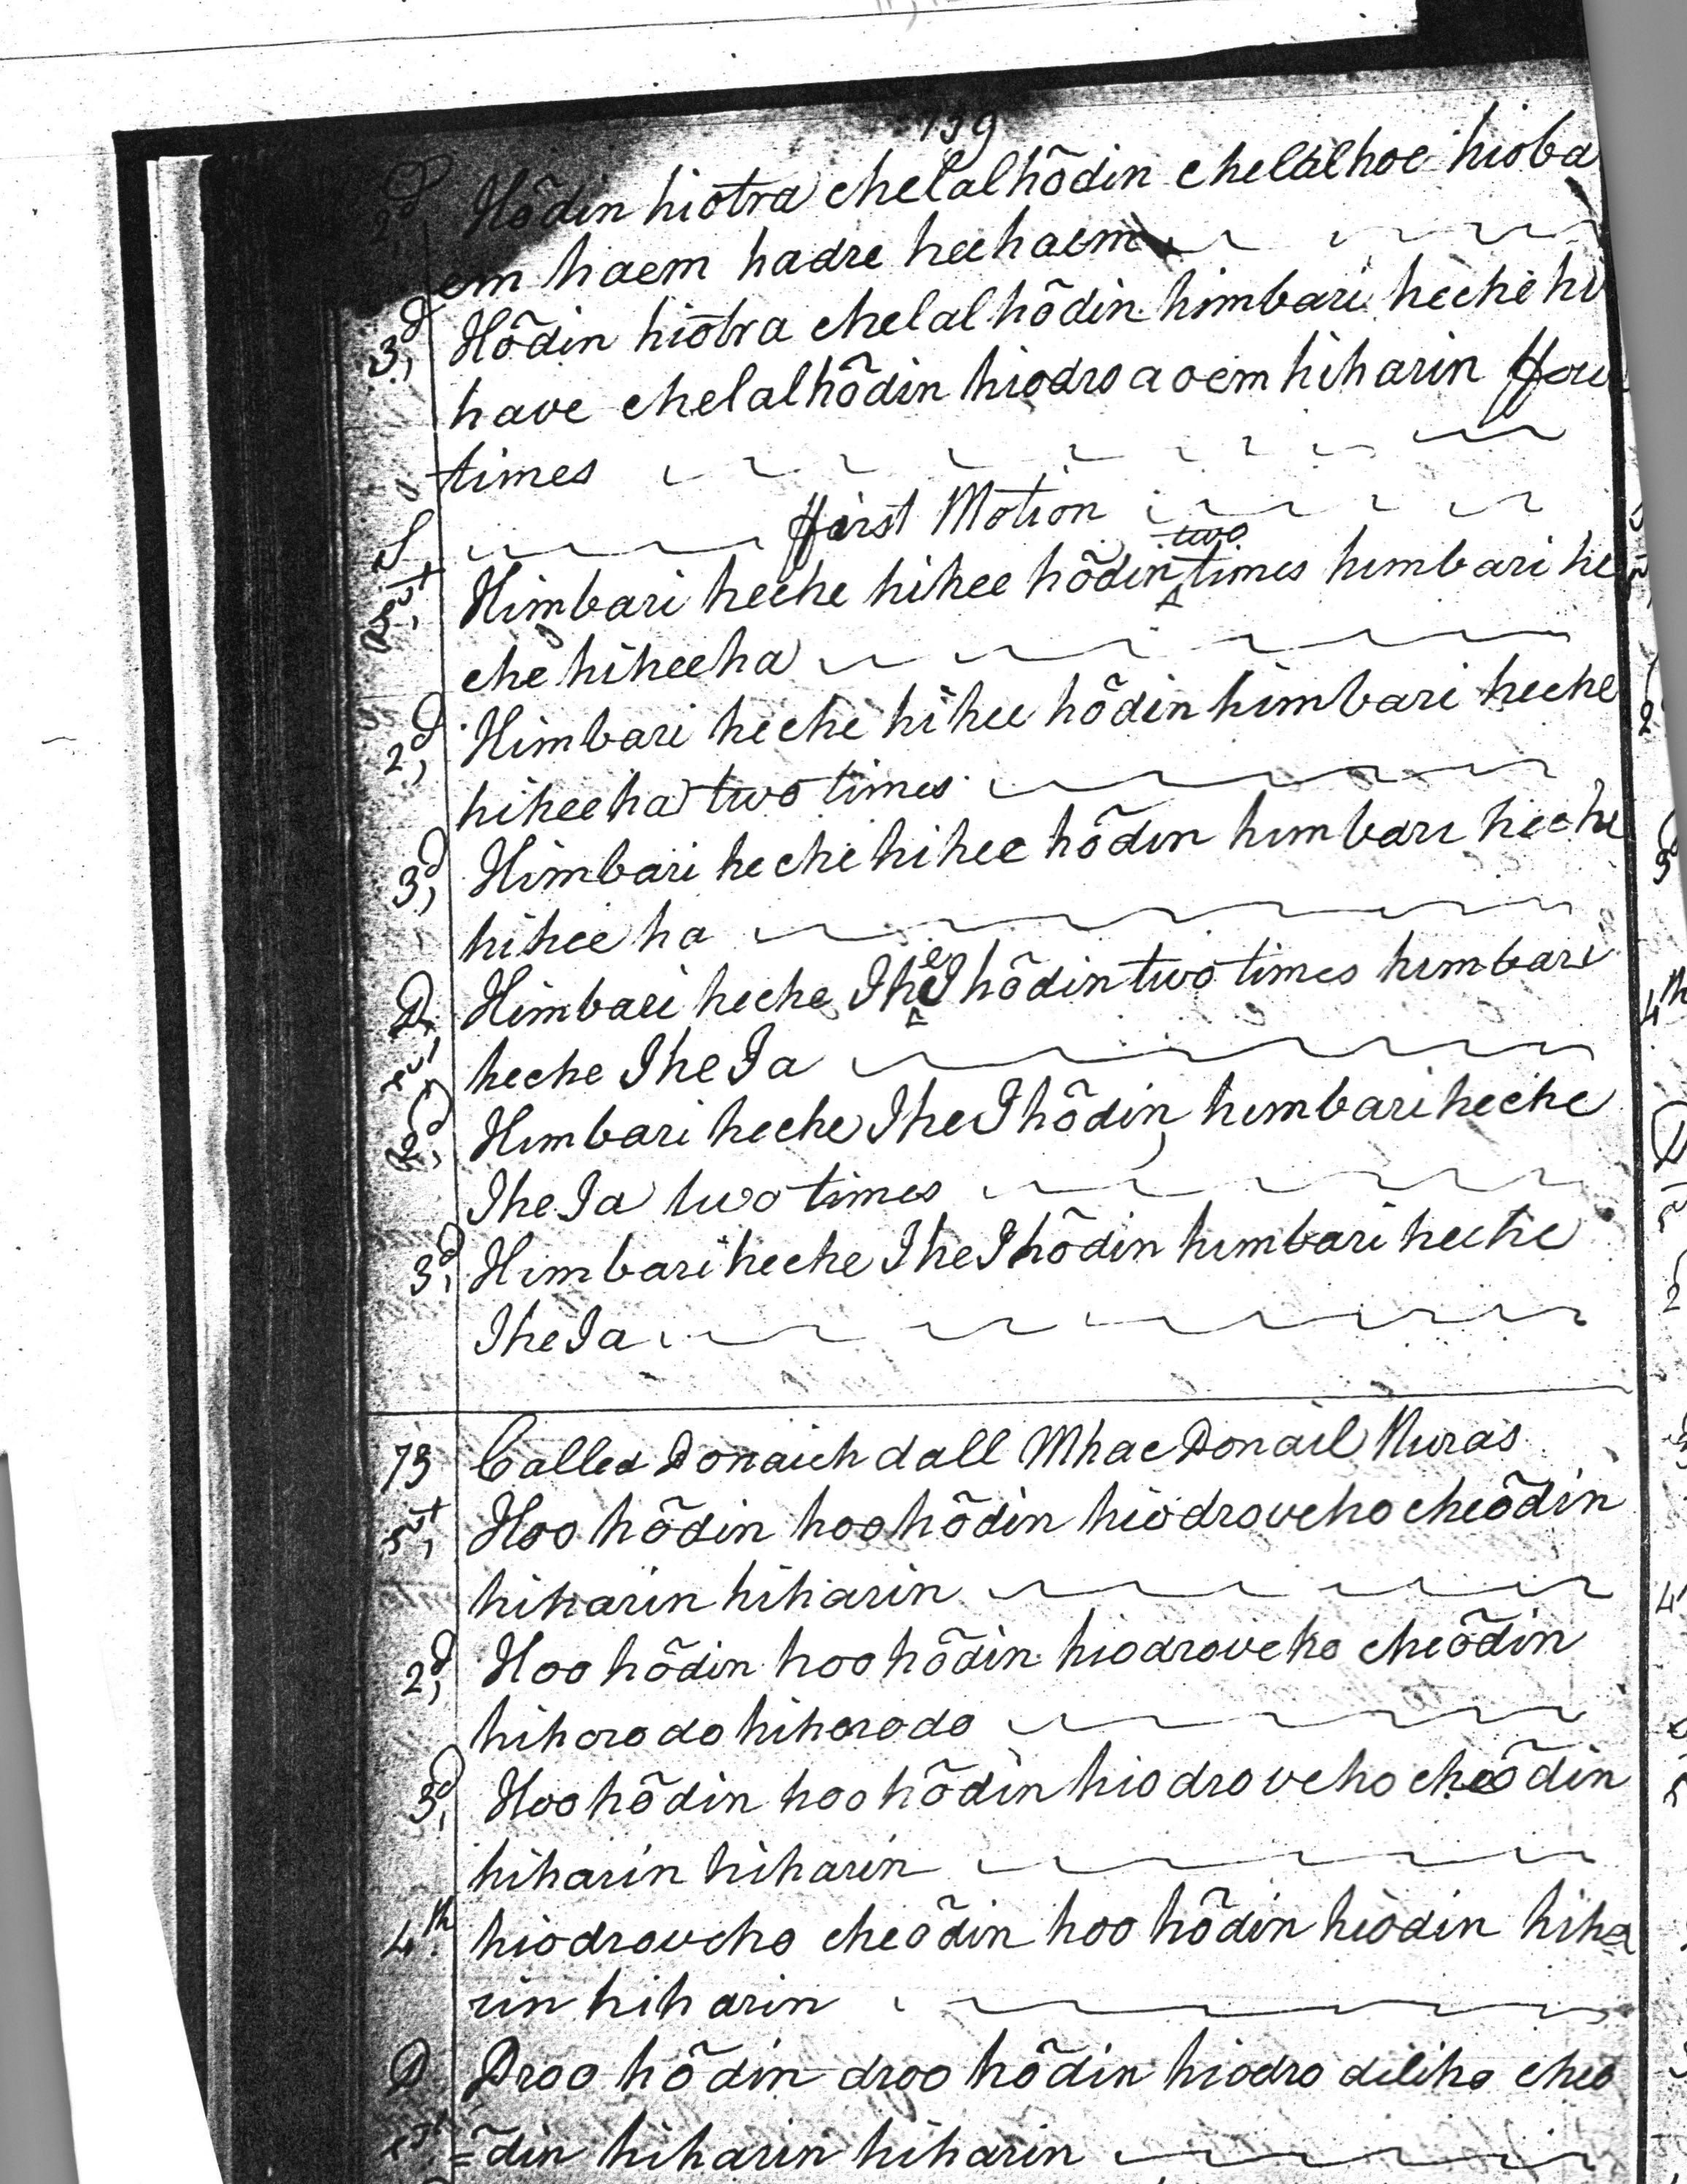 139
2,d Hõdin hiotra chelalhõdin chelalhoe hioba
em haem hadre heehaem
3,d Hõdin hiotra chelalhõdin himbari heche hi
have chelalhõdin hiodro a oem hiharin ffour
times
S ffirst Motion
1st, Himbari heche hihee hõdin two times himbari he
che hiheeha
2,d Himbari heche hihee hõdin himbari heche
hiheeha two times
3,d Himbari heche hihee hõdin himbari heche
hihee ha
D, Himbari heche IheI hõdin two times himbari
1st heche IheIa
2,d Himbari heche IheIhõdin, himbari heche
IheIa two times
3,d Himbari heche IheIhõdin himbari heche
IheIa
73 Called Donaich dall Mhac Donail Nuras
1st, Hoo hõdin hoo hõdin hiodroveho cheõdin
hiharin hiharin
2,d Hoo hõdin hoo hõdin hiodroveho cheõdin
hihorodo hihorodo
3,d Hoo hõdin hoo hõdin hiodroveho cheõdin
hiharin hiharin
4th, hiodroveho cheõdin hoo hõdin hiodin hiha
rin hiharin
D Droo hõdin droo hõdin hiodro diliho cheo
1st =õdin hiharin hiharin